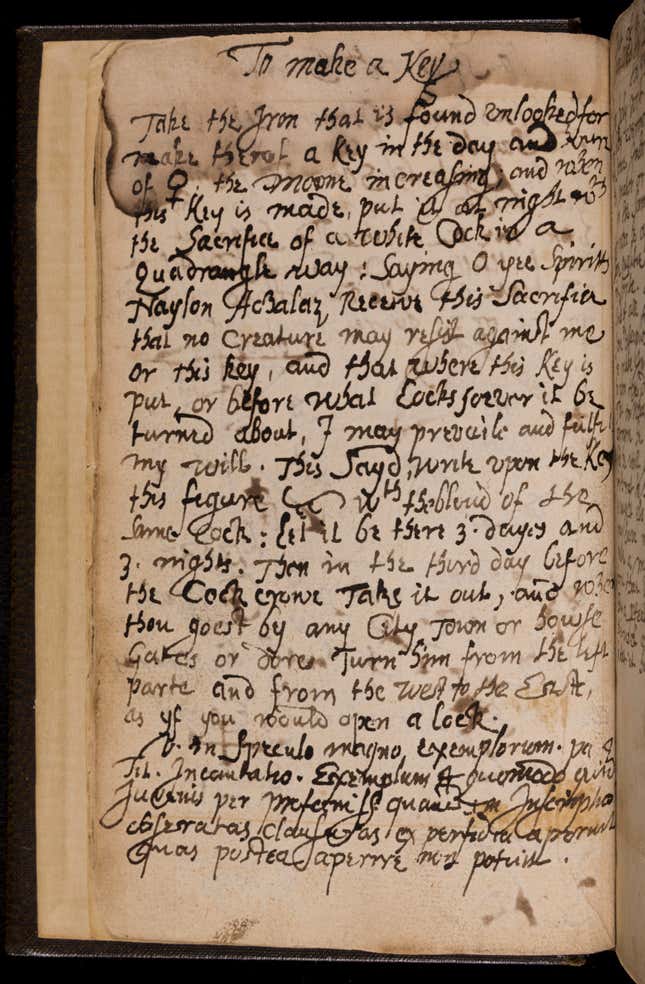 To make a Key
Take the Iron that is found vnlooked for
make therof a key in the day and
of ♀. the Moone increasing, and when
this Key is made, put it at night wth
the Sacrifice of a white Cock in a
Quadrangle way: Saying O yee Spirits
Naylon Acbalaz Receive this Sacrifice
that no Creature may resist against me
or this key, and that where this Key is
put, or before what Locks soever it be
turned about, I may prevaile and fulfil
my will. This Sayd, write vpon the Key
this figure wth the bloud of the
same Cock: let it be there 3. dayes and
3. nights. Then in the third day before
the Cock crowe Take it out, and when
thou goest by any City Town or house
Gates or dores Turn him from the left
parte and from the west to the East,
as yf you would open a lock.
in speculo magno, exemplorum.
Tit. Incantatio. Exemplum quomodo
Juvenis per
obseratas clausuras ex perfidia aperuit
quas postea aperire non potuit.